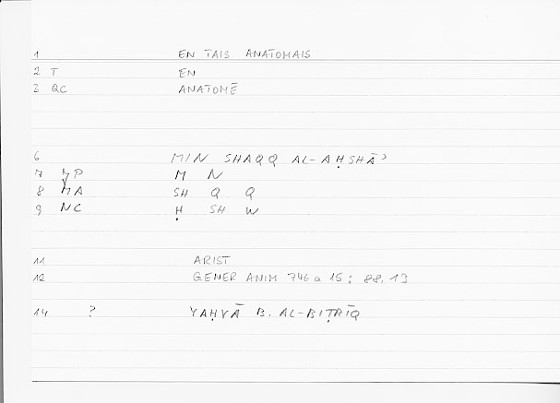 1 EN TAIS ANATOMAIS
2 T EN
3 QC ANATOMĒ
6 MIN SHAQQ AL-AḤSHĀʾ
7 YP M N
8 MA SH Q Q
9 NC Ḥ SH W
11 ARIST
12 GENER ANIM 746a15; 88,13
14 ? YAḤYĀ B. AL-BIṬRĪQ